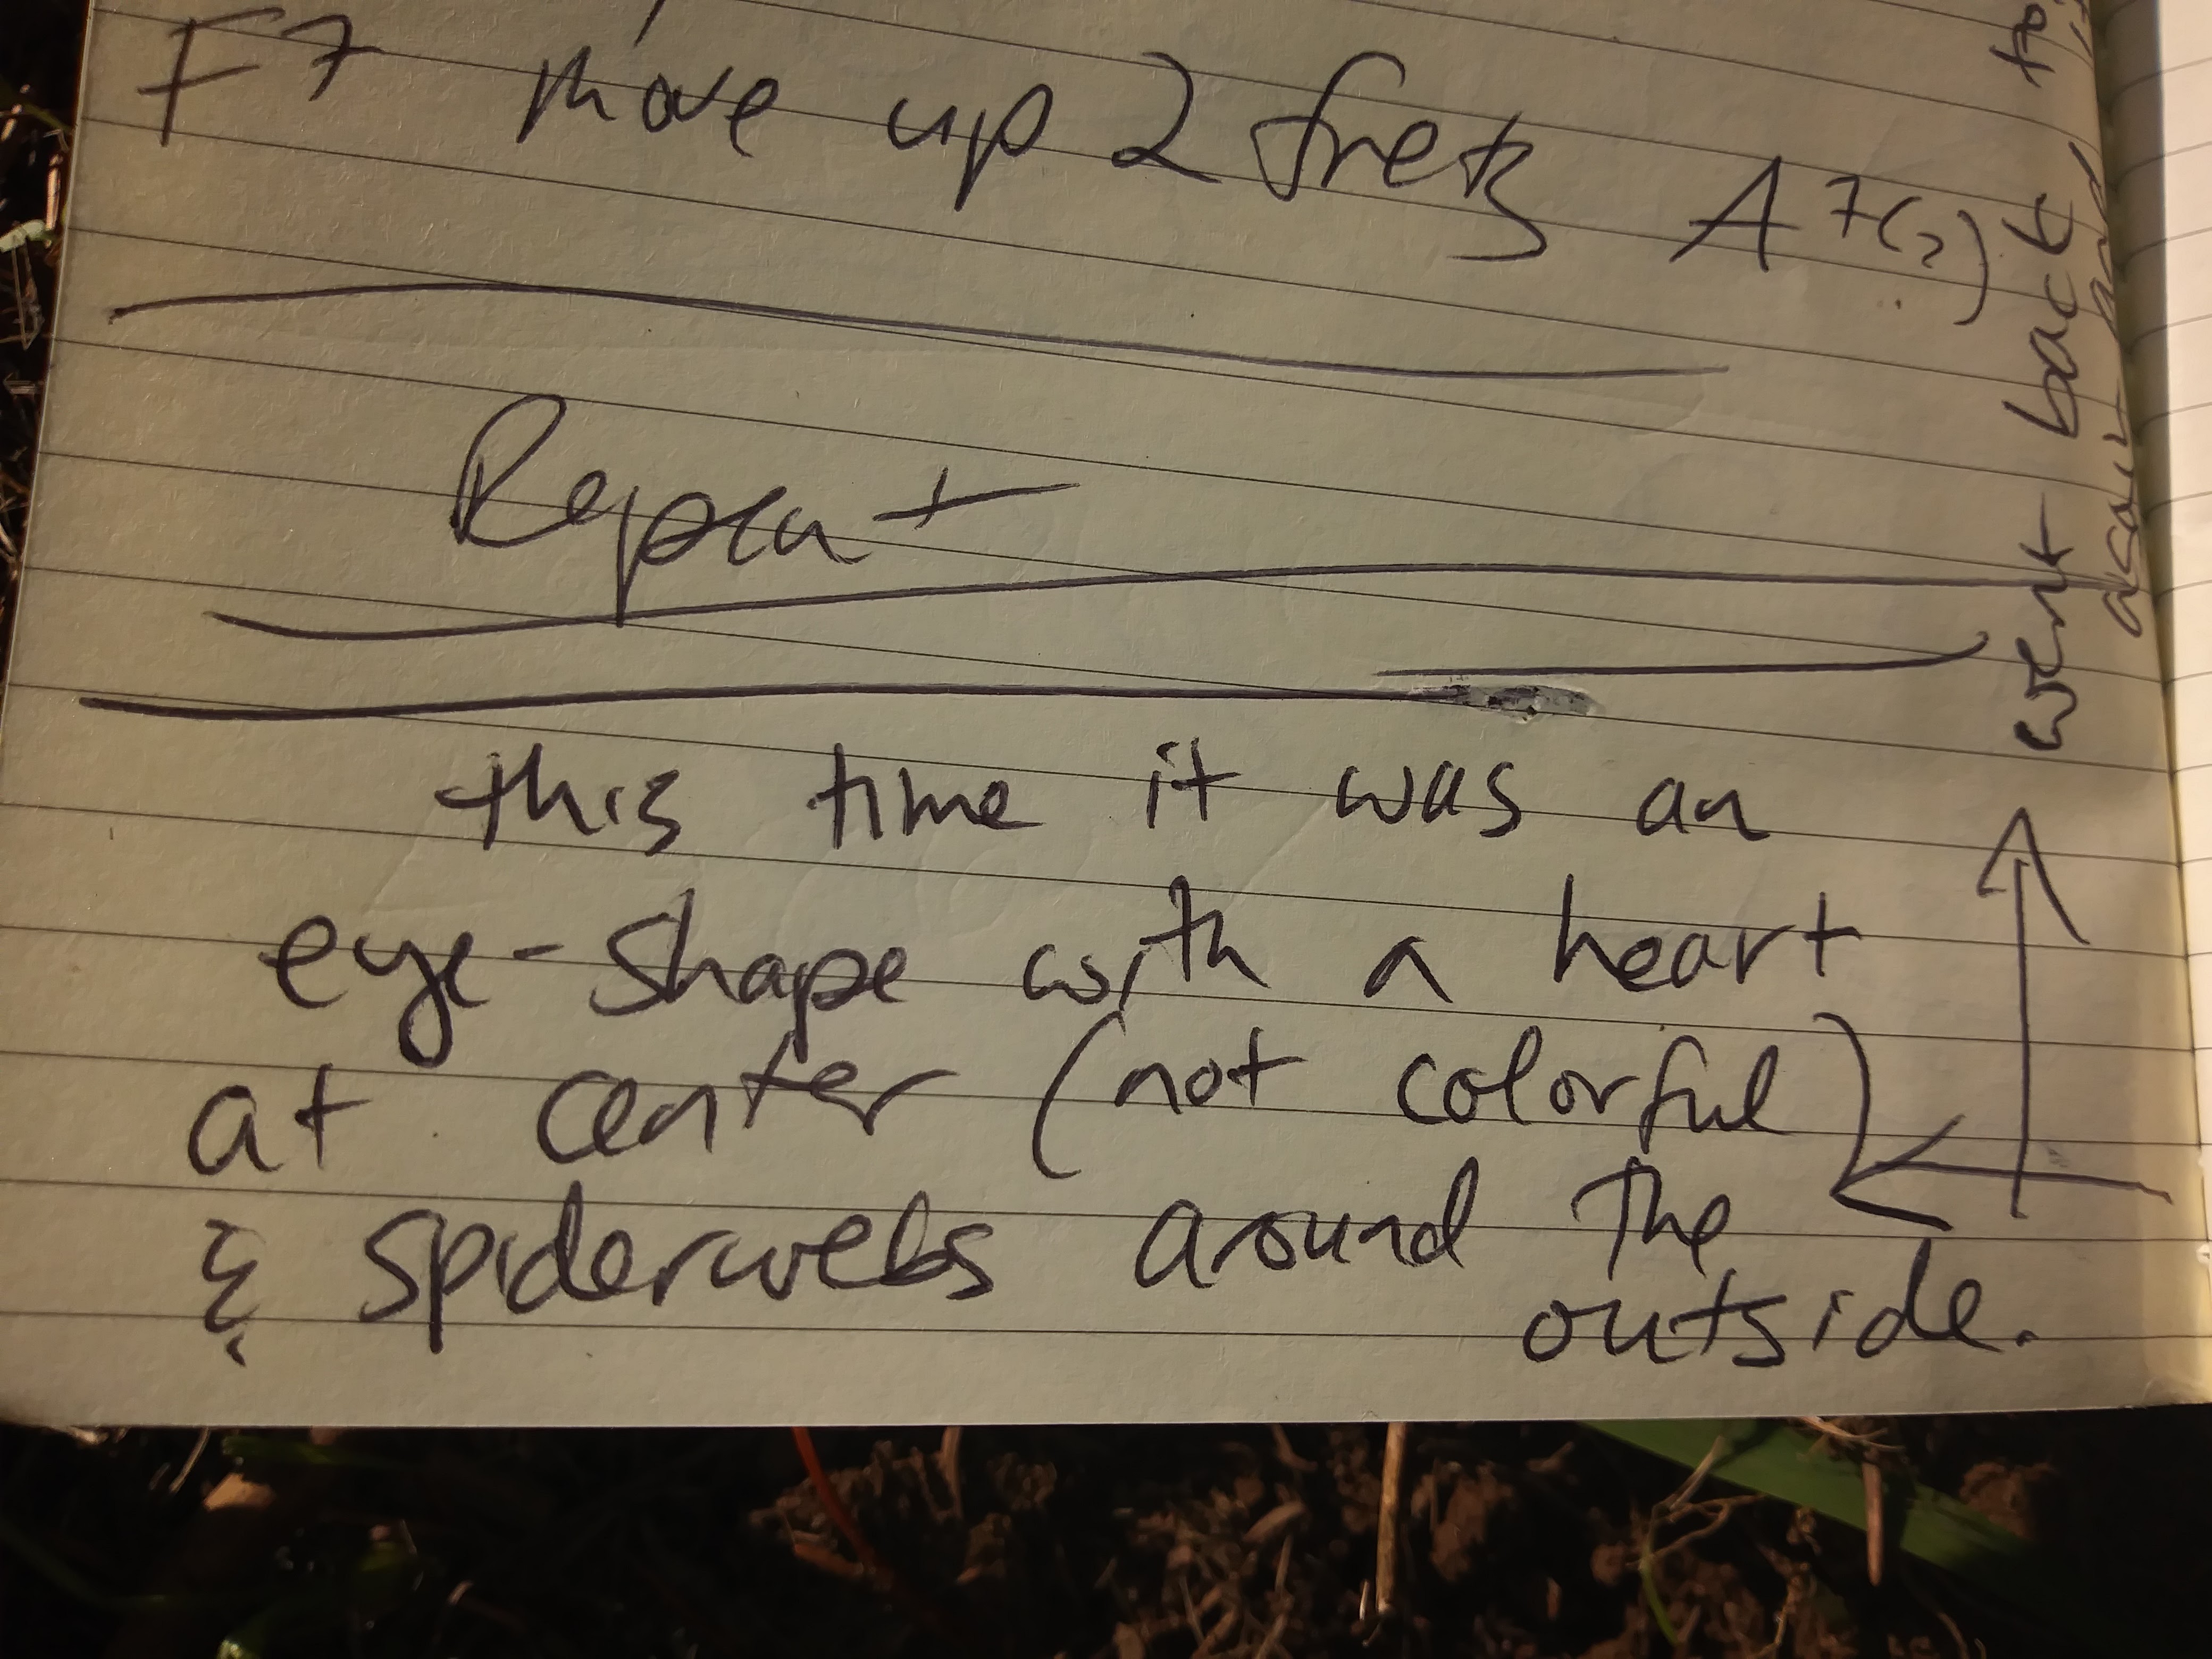 F7 move up 2 frets A7(?)
Repeat
this time it was an
eye-shape with a heart
at center (not colorful)
& spiderwebs around the
outside.
went back to
again and